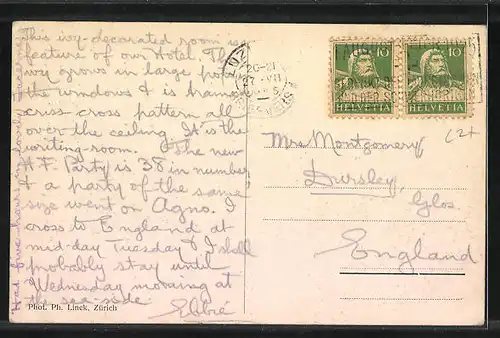 This ivy-decorated room is a
feature of our Hotel. The
ivy grows in large pots
the windows & is trained
criss-cross pattern all
over the ceiling. It is the
writing-room. The new
H.F. Party is 38 in number
& a party of the same
size went on Agno. I
cross to England at
mid-day Tuesday & I shall
probably stay until
Wednesday morning at
the sea-side
Ebbie
Had five hours in lovely
Phot. Ph. Linck, Zürich
10 10
HELVETIA HELVETIA
Mrs Montgomery
Dursley,
Glos.
England